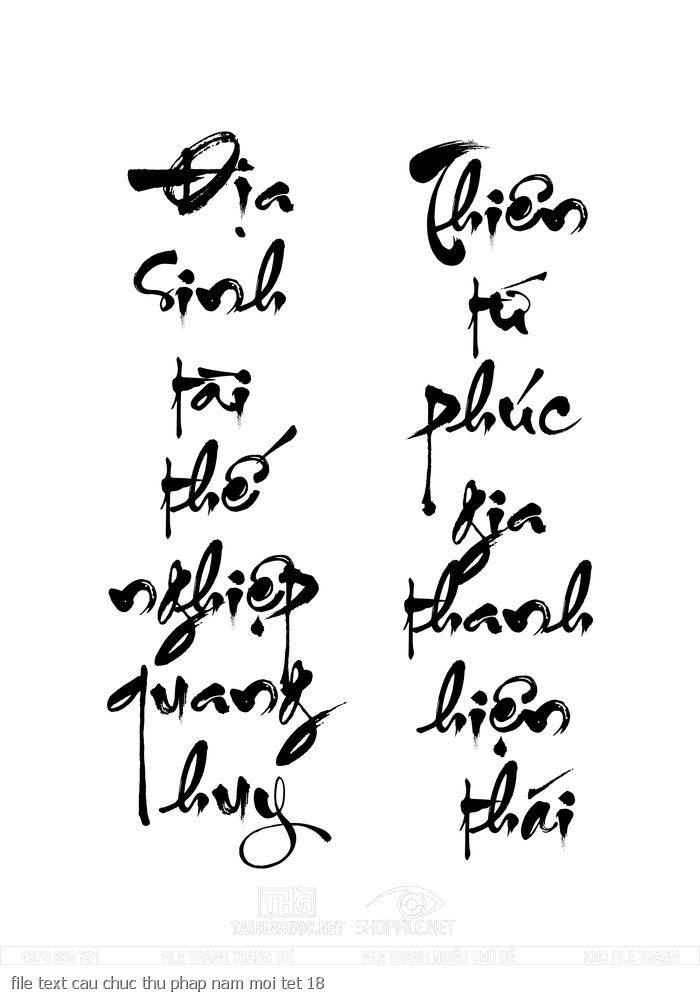 Địa
Sinh
tài
thế
nghiệp
quang
huy
Thiên
tứ
phúc
gia
thanh
hiện
thái
THG
TAIHINHGOC.NET
SHOPFILE.NET
0973 989 781
FILE TRANH TRANG TRÍ
FILE TRANH NHIỀU CHỦ ĐỀ
KHO FILE TRANH
file text cau chuc thu phap nam moi tet 18